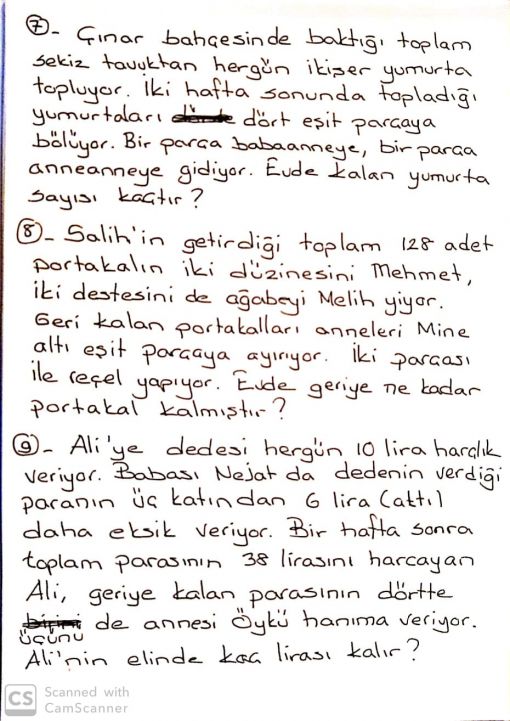 7- Çınar bahçesinde baktığı toplam
sekiz tavuktan hergün ikişer yumurta
topluyor. İki hafta sonunda topladığı
yumurtaları dört eşit parçaya
bölüyor. Bir parça babaanneye, bir parça
anneanneye gidiyor. Evde kalan yumurta
sayısı kaçtır?
8- Salih'in getirdiği toplam 128 adet
portakalın iki düzinesini Mehmet,
iki destesini de ağabeyi Melih yiyor.
Geri kalan portakalları anneleri Mine
altı eşit parçaya ayırıyor. İki parçası
ile reçel yapıyor. Evde geriye ne kadar
portakal kalmıştır?
9- Ali'ye dedesi hergün 10 lira harçlık
veriyor. Babası Nejat da dedenin verdiği
paranın üç katından 6 lira (altı)
daha eksik veriyor. Bir hafta sonra
toplam parasının 38 lirasını harcayan
Ali, geriye kalan parasının dörtte
üçünü de annesi Öykü hanıma veriyor.
Ali'nin elinde kaç lirası kalır?
CS Scanned with
CamScanner